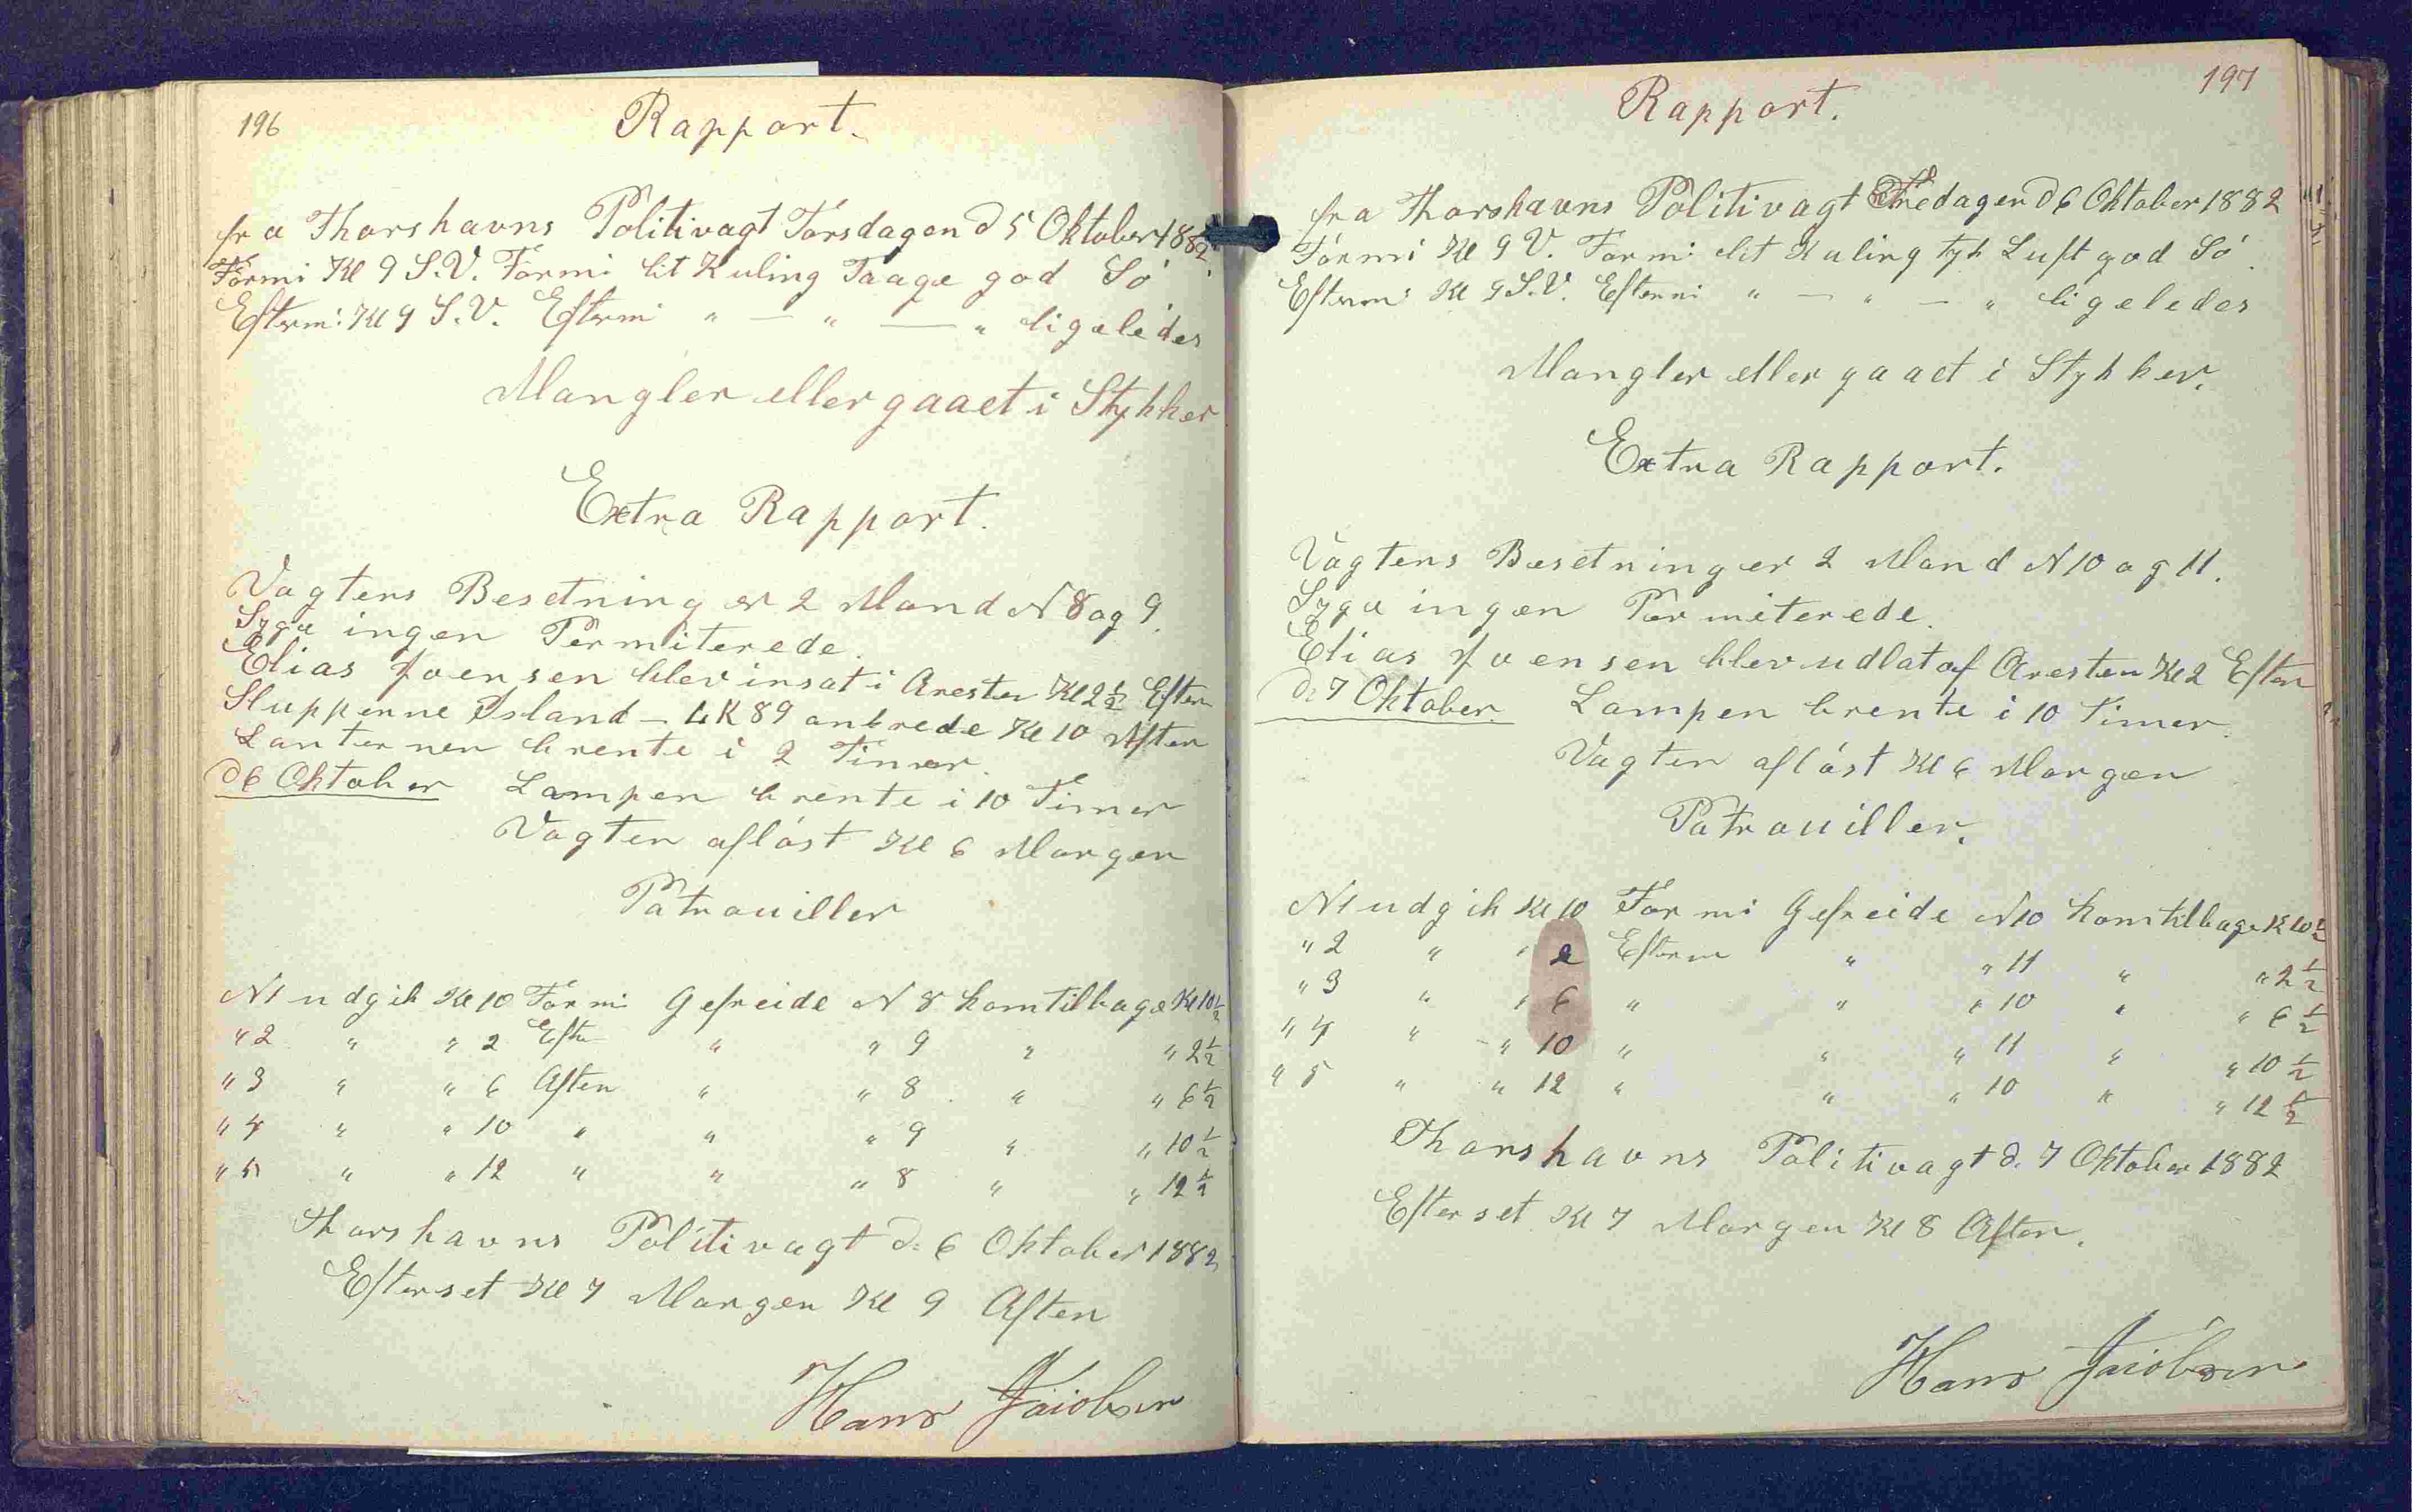 196
Rapport.
fra Thorshavns Politivagt Torsdagen d 5 Oktober 1882.
Formi Kl 9 S.V. Formi lit Kuling Taage god Sö
Efterm: Kl 9 S.V. Eftermi " — " — " ligeledes
Mangler eller gaaet i Stykker
Extra Rapport.
Vagtens Besetning er 2 Mand N 8 og 9.
Syge ingen Permiterede.
Elias Joensen blev insat i Aresten Kl 2½ Efterm
Sluppenne Island - LK 89 ankrede Kl 10 Aften
Lanternen brente i 2 Timer.
d 6 Oktober Lampen brente i 10 Timer
Vagten aflöst Kl 6 Morgen
Patrouiller
N1 udgik Kl 10 Formi Gefreide N 8 komtilbage Kl 10½
" 2 " " 2 Efter " " 9 " " 2½
" 3 " " 6 Aften " " 8 " " 6½
" 4 " " 10 " " " 9 " " 10½
" 5 " " 12 " " " 8 " " 12½
Thorshavns Politivagt d: 6 Oktober 1882
Efterset Kl 7 Morgen Kl 9 Aften
Hans Jaiobsen
197
Rapport.
fra Thorshavns Politivagt Fredagen d 6 Oktober 1882
Formi Kl 9 V. Formi lit Kuling tyk Luft god Sö.
Efterm: Kl 9 S.V. Eftermi " — " — " ligeledes
Mangler eller gaaet i Stykker.
Extra Rapport.
Vagtens Besetning er 2 Mand N 10 og 11.
Syge ingen Permiterede.
Elias Joensen blev udlat af Aresten Kl 2 Efterm
d: 7 Oktober. Lampen brente i 10 Timer.
Vagten aflöst Kl 6 Morgen
Patrouiller.
N1 udgik Kl 10 Formi Gefreide N10 komtilbage Kl 10½
" 2 " " 2 Efterm " " 11 " " 2½
" 3 " " 6 " " " 10 " " 6½
" 4 " " 10 " " " 11 " " 10½
" 5 " " 12 " " " 10 " " 12½
Thorshavns Politivagt d. 7 Oktober 1882
Efterset Kl 7 Morgen Kl 8 Aften.
Hans Jaiobsen